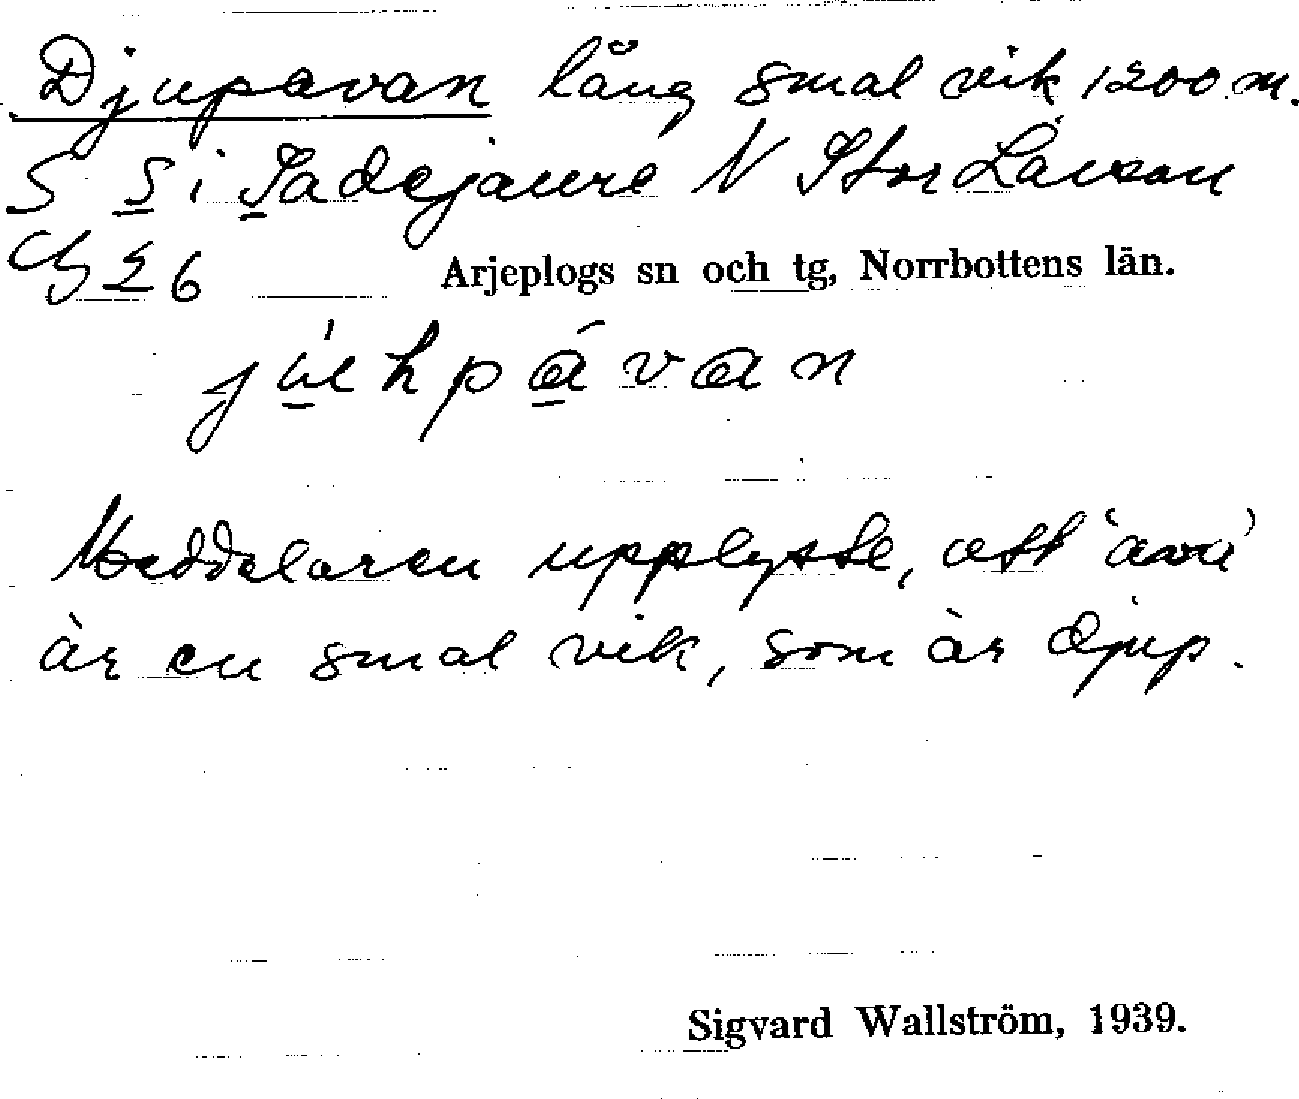 Djupavan lång smal vik 1200 m.
S S i Sadejaure N Stor Laisan
26
Arjeplogs sn och tg, Norrbottens län.
Meddelaren upplyste, att 'ava'
är en smal vik, som är djup.
Sigvard Wallström, 1939.